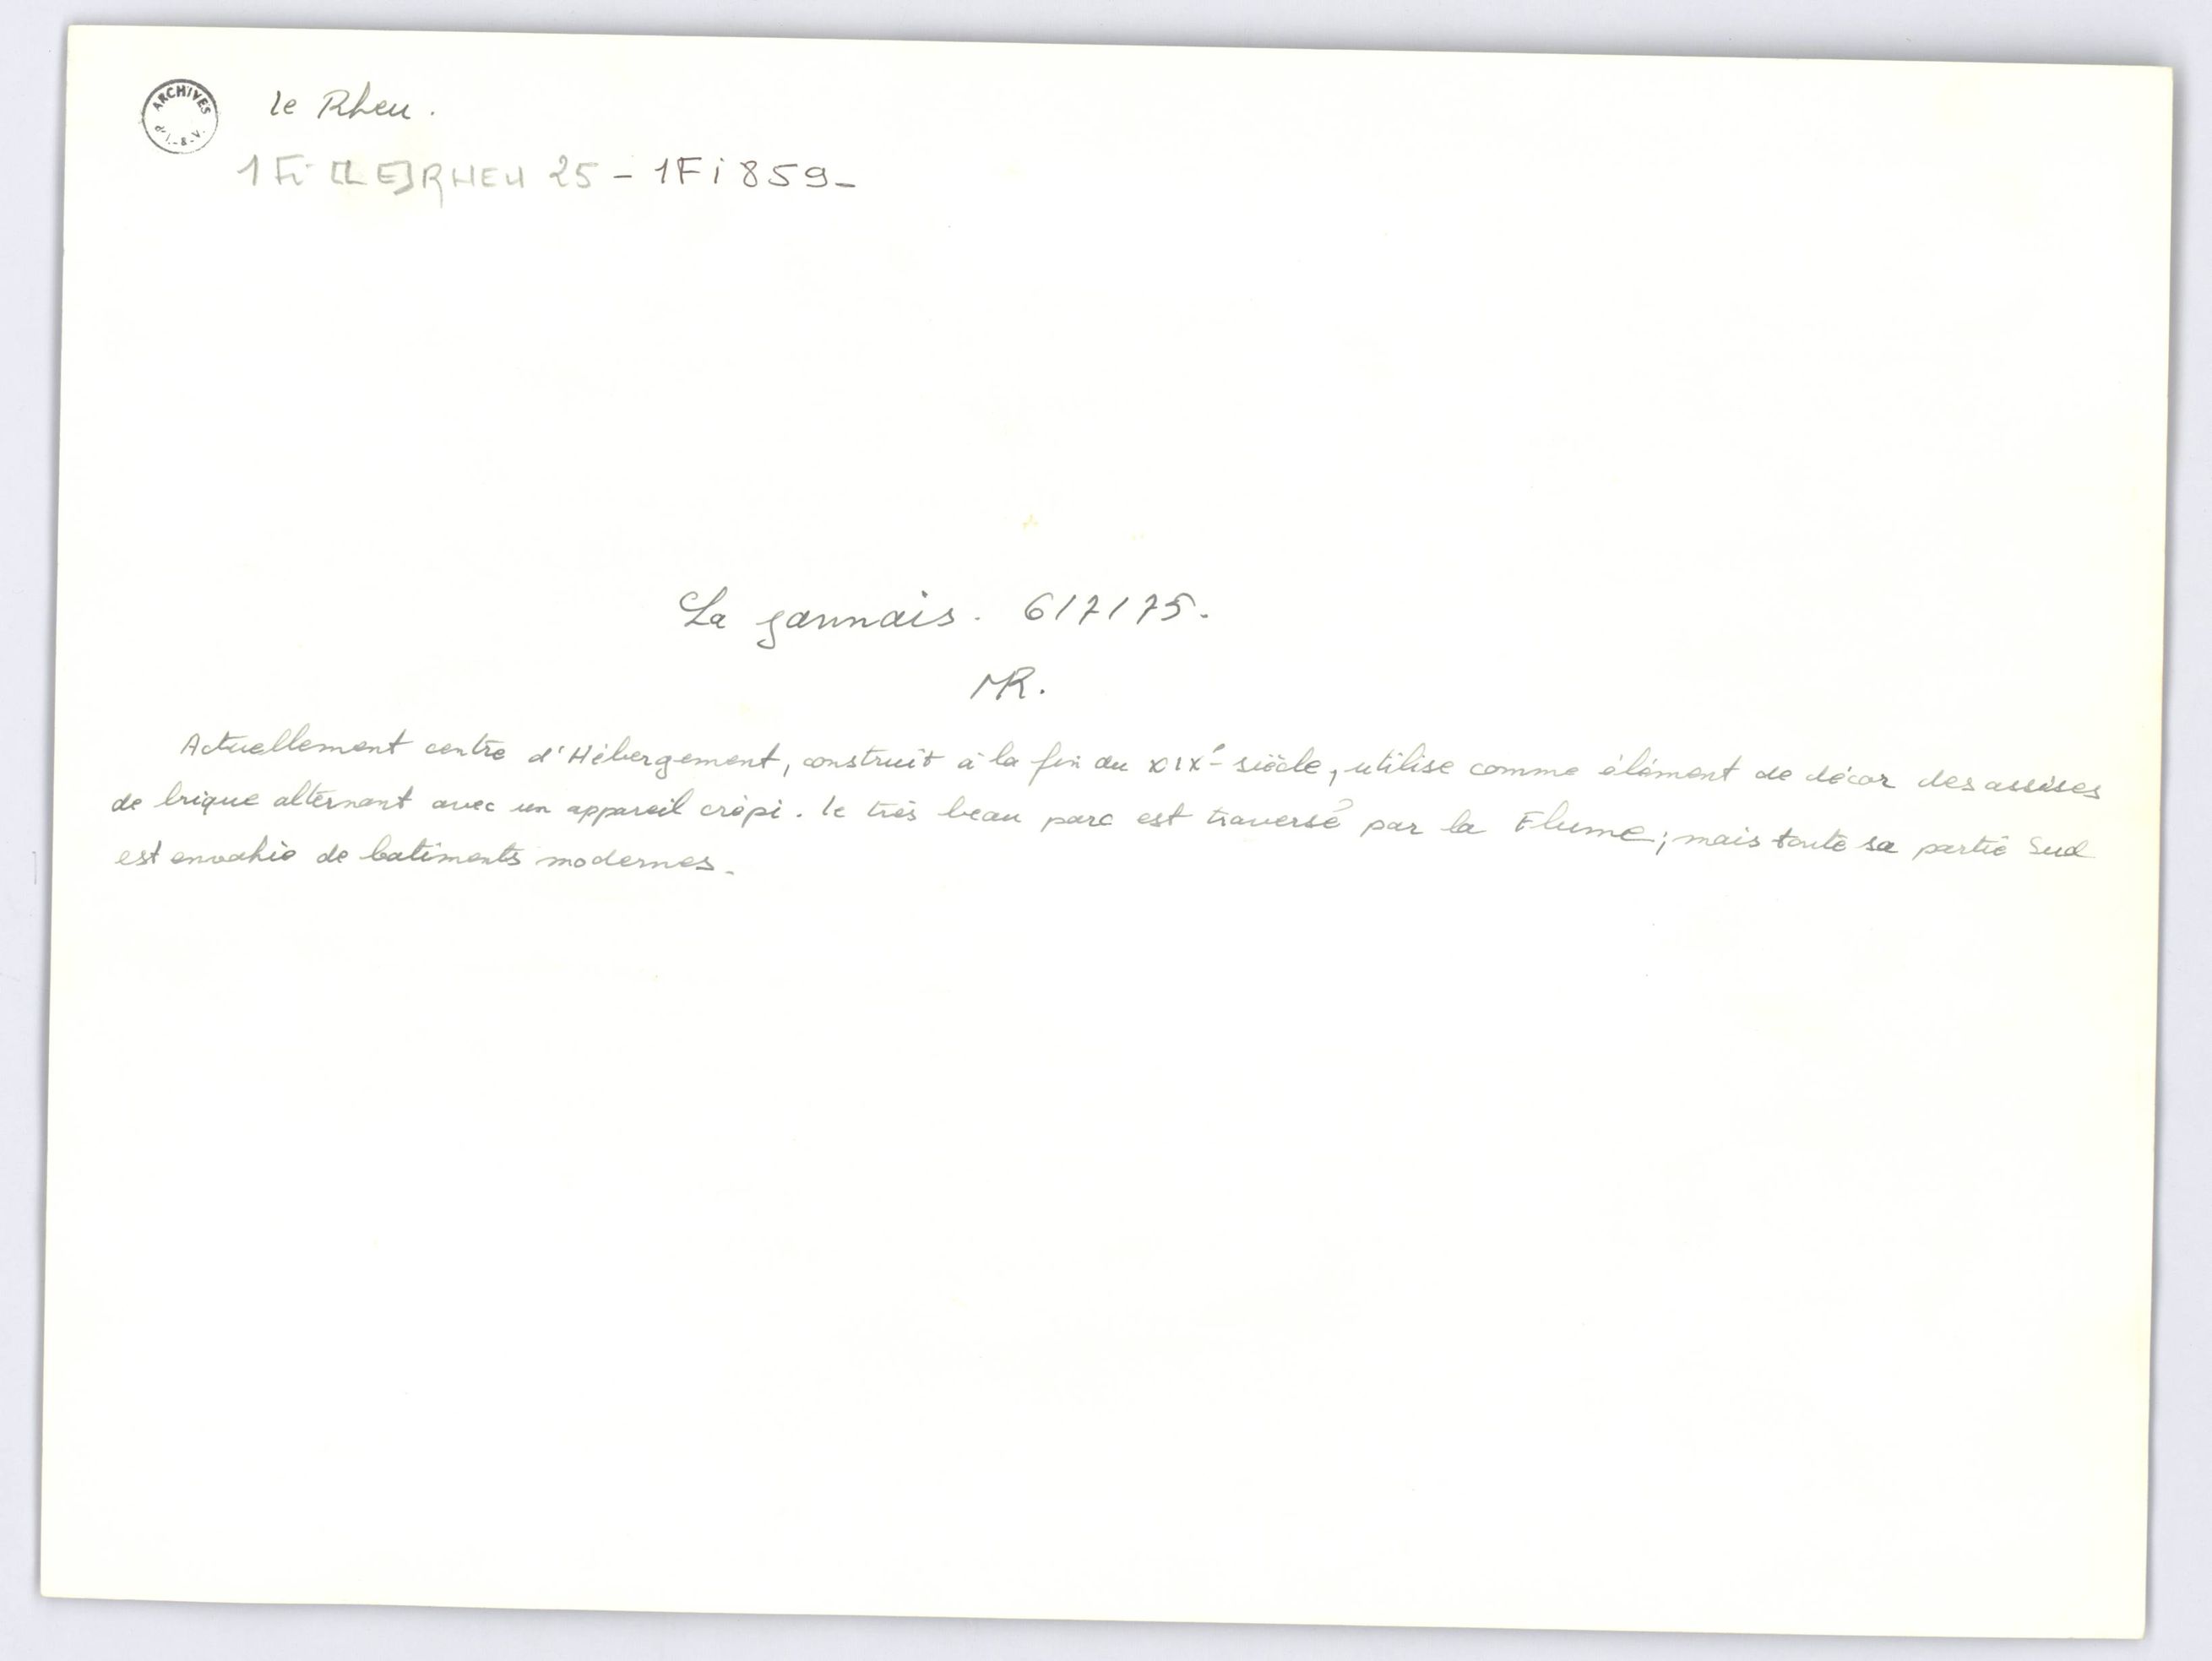 ARCHIVES
I.-&-V.
le Rheu.
1 Fi [LE] RHEU 25 - 1 Fi 859 -
La Jannais. 6/7/75.
MR.
Actuellement centre d'Hébergement, construit à la fin du XIXe siècle, utilise comme élément de décor des assises
de brique alternant avec un appareil crépi. le très beau parc est traversé par la Flume; mais toute sa partie Sud
est envahie de batiments modernes.